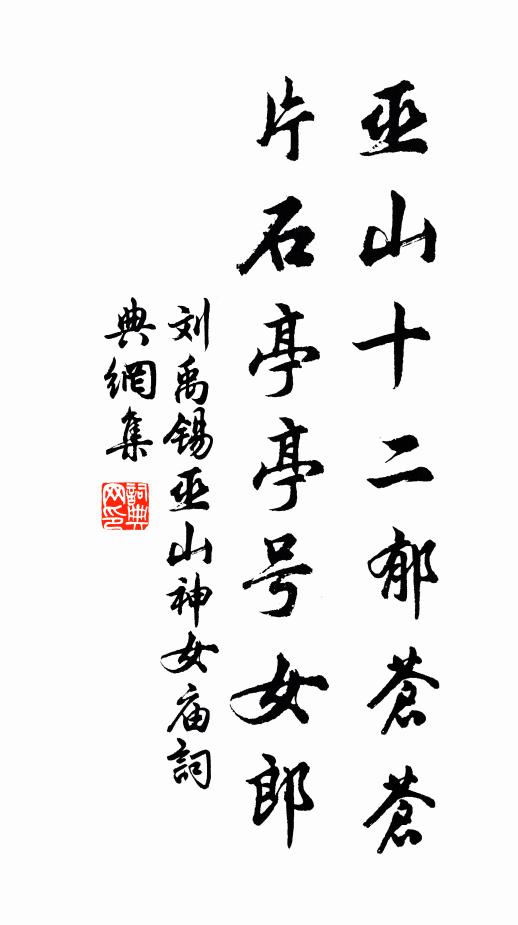 巫山十二郁蒼蒼
片石亭亭号女郎
刘禹锡巫山神女庙詞
典網集
詞典网印